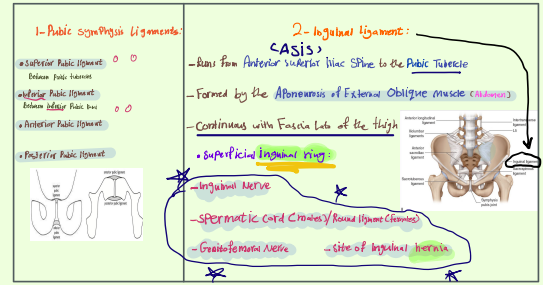 1-Pubic symphysis Ligaments:
• Superior Pubic ligament
Between Pubic tubercles
• Inferior Pubic ligament
Between inferior Pubic
• Anterior Pubic ligament
• Posterior Pubic ligament
2-Inguinal Ligament:
(ASIS)
-Runs from Anterior superior iliac spine to the Pubic Tubercle
-Formed by the Aponeurosis of External Oblique muscle (Abdomen)
-Continuous with Fascia Lata of the thigh
• Superficial inguinal ring:
-Inguinal Nerve
-Spermatic Cord (males)/Round ligament (females)
-Genitofemoral Nerve
-site of inguinal hernia
Anterior longitudinal
ligament
Iliolumbar
ligament
Anterior
sacroiliac
ligament
Sacrotuberous
ligament
Inguinal
ligament
Symphysis
pubis joint